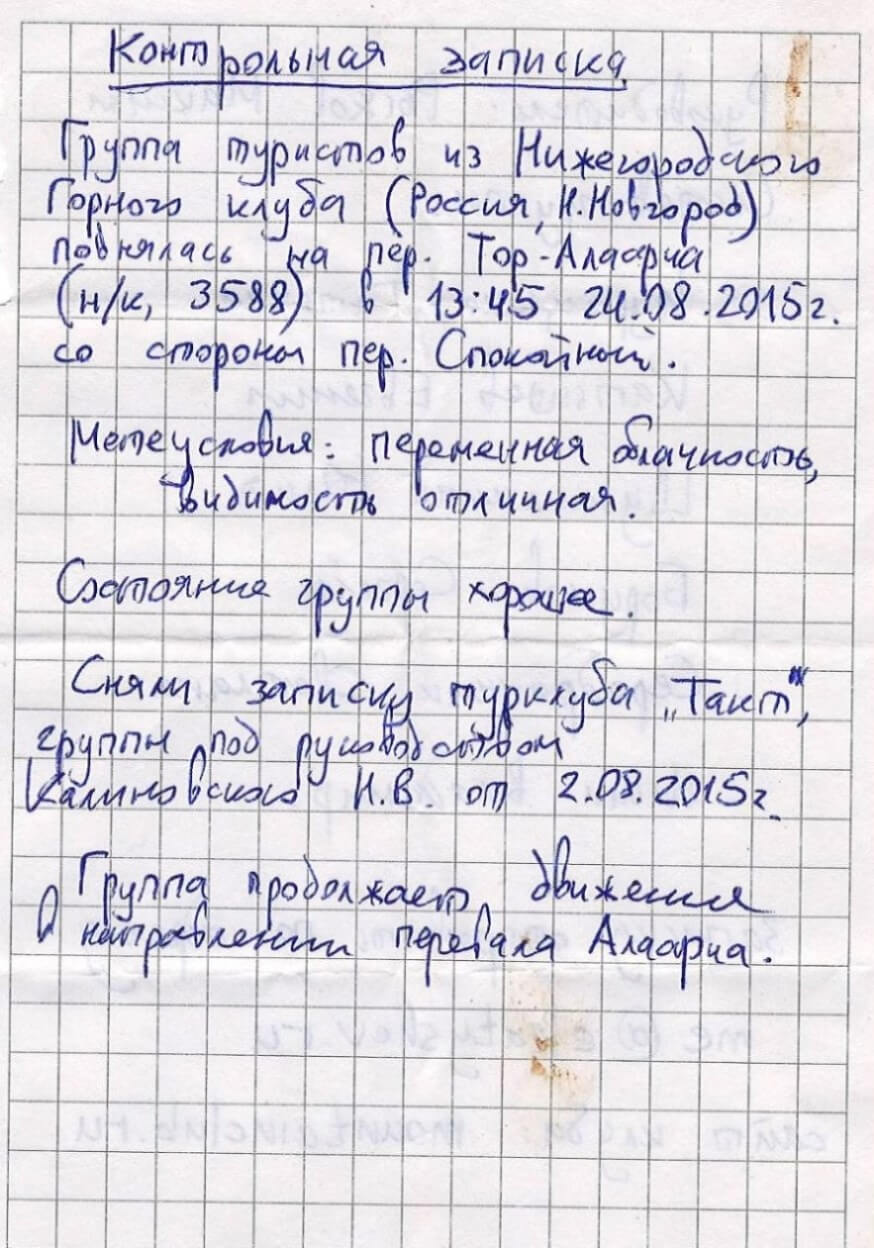 Контрольная записка
Группа туристов из Нижегородского
Горного клуба (Россия, Н.Новгород)
поднялась на пер. Тор-Алаарча
(н/к, 3588) в 13:45 24.08.2015г.
со стороны пер. Спокойный.
Метеусловия: переменная блачность,
видимость отличная.
Состояние группы хорошее.
Сняли записку турклуба „Такт",
группы под руководством
Калиновского Н.В. от 2.08.2015г.
Группа продолжает движения
в направлении перевала Алаарча.